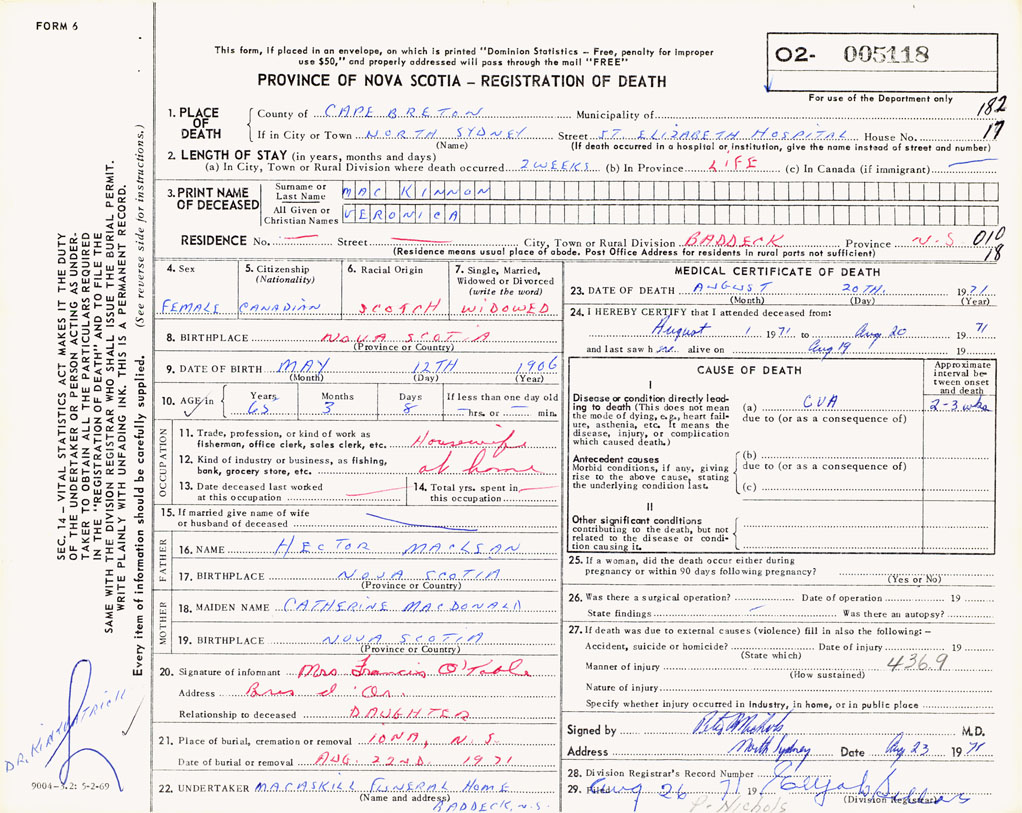 FORM 6
This form, if placed in an envelope, on which is printed "Dominion Statistics – Free, penalty for improper
use $50," and properly addressed will pass through the mail "FREE"
PROVINCE OF NOVA SCOTIA – REGISTRATION OF DEATH
O2- 005118
For use of the Department only
1. PLACE OF DEATH
County of CAPE BRETON Municipality of 182
If in City or Town NORTH SYDNEY Street ST. ELIZABETH HOSPITAL House No. 17
(Name) (If death occurred in a hospital or institution, give the name instead of street and number)
2. LENGTH OF STAY (in years, months and days)
(a) In City, Town or Rural Division where death occurred 2 WEEKS (b) In Province LIFE (c) In Canada (if immigrant) —
3. PRINT NAME OF DECEASED
Surname or Last Name MAC KINNON
All Given or Christian Names VERONICA
RESIDENCE No. — Street — City, Town or Rural Division BADDECK Province N.S 010
(Residence means usual place of abode. Post Office Address for residents in rural parts not sufficient) 18
4. Sex
FEMALE
5. Citizenship (Nationality)
CANADIAN
6. Racial Origin
SCOTCH
7. Single, Married, Widowed or Divorced (write the word)
WIDOWED
8. BIRTHPLACE NOVA SCOTIA
(Province or Country)
9. DATE OF BIRTH MAY 12TH 1906
(Month) (Day) (Year)
10. AGE in Years Months Days If less than one day old
65 3 8 — hrs. or — min.
OCCUPATION
11. Trade, profession, or kind of work as
fisherman, office clerk, sales clerk, etc. Housewife
12. Kind of industry or business, as fishing,
bank, grocery store, etc. at home
13. Date deceased last worked
at this occupation —
14. Total yrs. spent in
this occupation —
15. If married give name of wife
or husband of deceased —
FATHER
16. NAME HECTOR MACLEAN
17. BIRTHPLACE NOVA SCOTIA
(Province or Country)
MOTHER
18. MAIDEN NAME CATHERINE MACDONALD
19. BIRTHPLACE NOVA SCOTIA
(Province or Country)
20. Signature of informant Mrs Francis O'Toole
Address Bras d'Or.
Relationship to deceased DAUGHTER
21. Place of burial, cremation or removal IONA, N.S
Date of burial or removal AUG. 22ND. 1971
22. UNDERTAKER MACASKILL FUNERAL HOME
(Name and address) BADDECK, N.S.
MEDICAL CERTIFICATE OF DEATH
23. DATE OF DEATH AUGUST 20TH. 1971
(Month) (Day) (Year)
24. I HEREBY CERTIFY that I attended deceased from:
August 1 1971 to Aug 20 1971
and last saw her alive on Aug 19 19
CAUSE OF DEATH
Approximate interval between onset and death
I
Disease or condition directly leading to death (This does not
mean the mode of dying, e.g., heart failure, asthenia, etc. It means the
disease, injury, or complication
which caused death.)
(a) CVA 2-3 wks
due to (or as a consequence of)
Antecedent causes
Morbid conditions, if any, giving
rise to the above cause, stating
the underlying condition last.
(b)
due to (or as a consequence of)
(c)
II
Other significant conditions
contributing to the death, but not
related to the disease or condition causing it.
25. If a woman, did the death occur either during
pregnancy or within 90 days following pregnancy?
(Yes or No)
26. Was there a surgical operation? Date of operation 19
State findings — Was there an autopsy?
27. If death was due to external causes (violence) fill in also the following: –
Accident, suicide or homicide? Date of injury 19
(State which)
Manner of injury 436.9
(How sustained)
Nature of injury
Specify whether injury occurred in Industry, in home, or in public place
Signed by Peter Nichols M.D.
Address North Sydney Date Aug 23 1971
28. Division Registrar's Record Number
29. Filed Aug 26 71 19
(Division Registrar)
P. Nichols
SEC. 14 – VITAL STATISTICS ACT MAKES IT THE DUTY
OF THE UNDERTAKER OR PERSON ACTING AS UNDER-
TAKER TO OBTAIN ALL THE PARTICULARS REQUIRED
IN THE "REGISTRATION OF DEATH" AND TO FILE THE
SAME WITH THE DIVISION REGISTRAR WHO SHALL ISSUE THE BURIAL PERMIT.
WRITE PLAINLY WITH UNFADING INK. THIS IS A PERMANENT RECORD.
Every item of information should be carefully supplied. (See reverse side for instructions.)
DR. KINTRICH
9004-5.2: 5-2-69